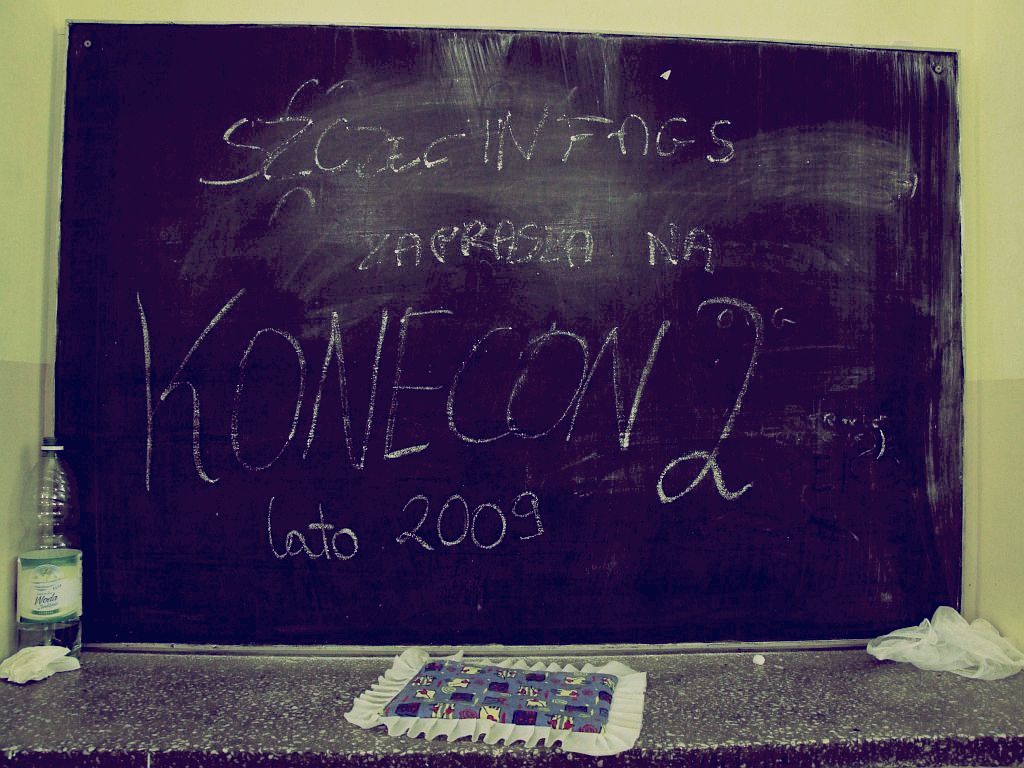 SZCZECIN FAGS
ZAPRASZA NA
KONECON 2
lato 2009
Woda